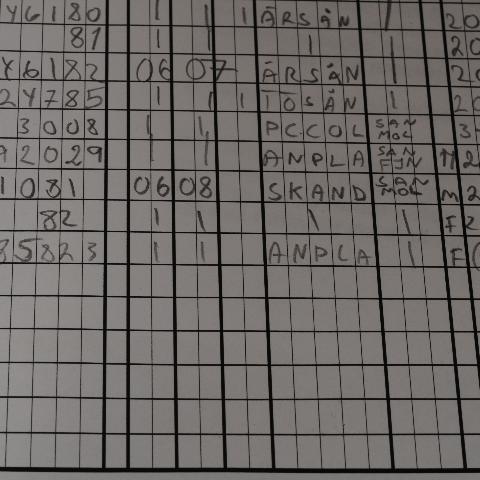 Y6180 | | 1 ÄRSÄN | 20
81 | | | | 20
Y6182 06 07 ÄRSÄN | 20
2Y785 | | 1 TOSÄN | 20
3008 | | PCCOL SAN MOC 3
A2029 | | ANPLA SAN FJN M2
1081 06 08 SKAND SAN MOC M2
82 | | | | F2
85823 | | ANPLA | F